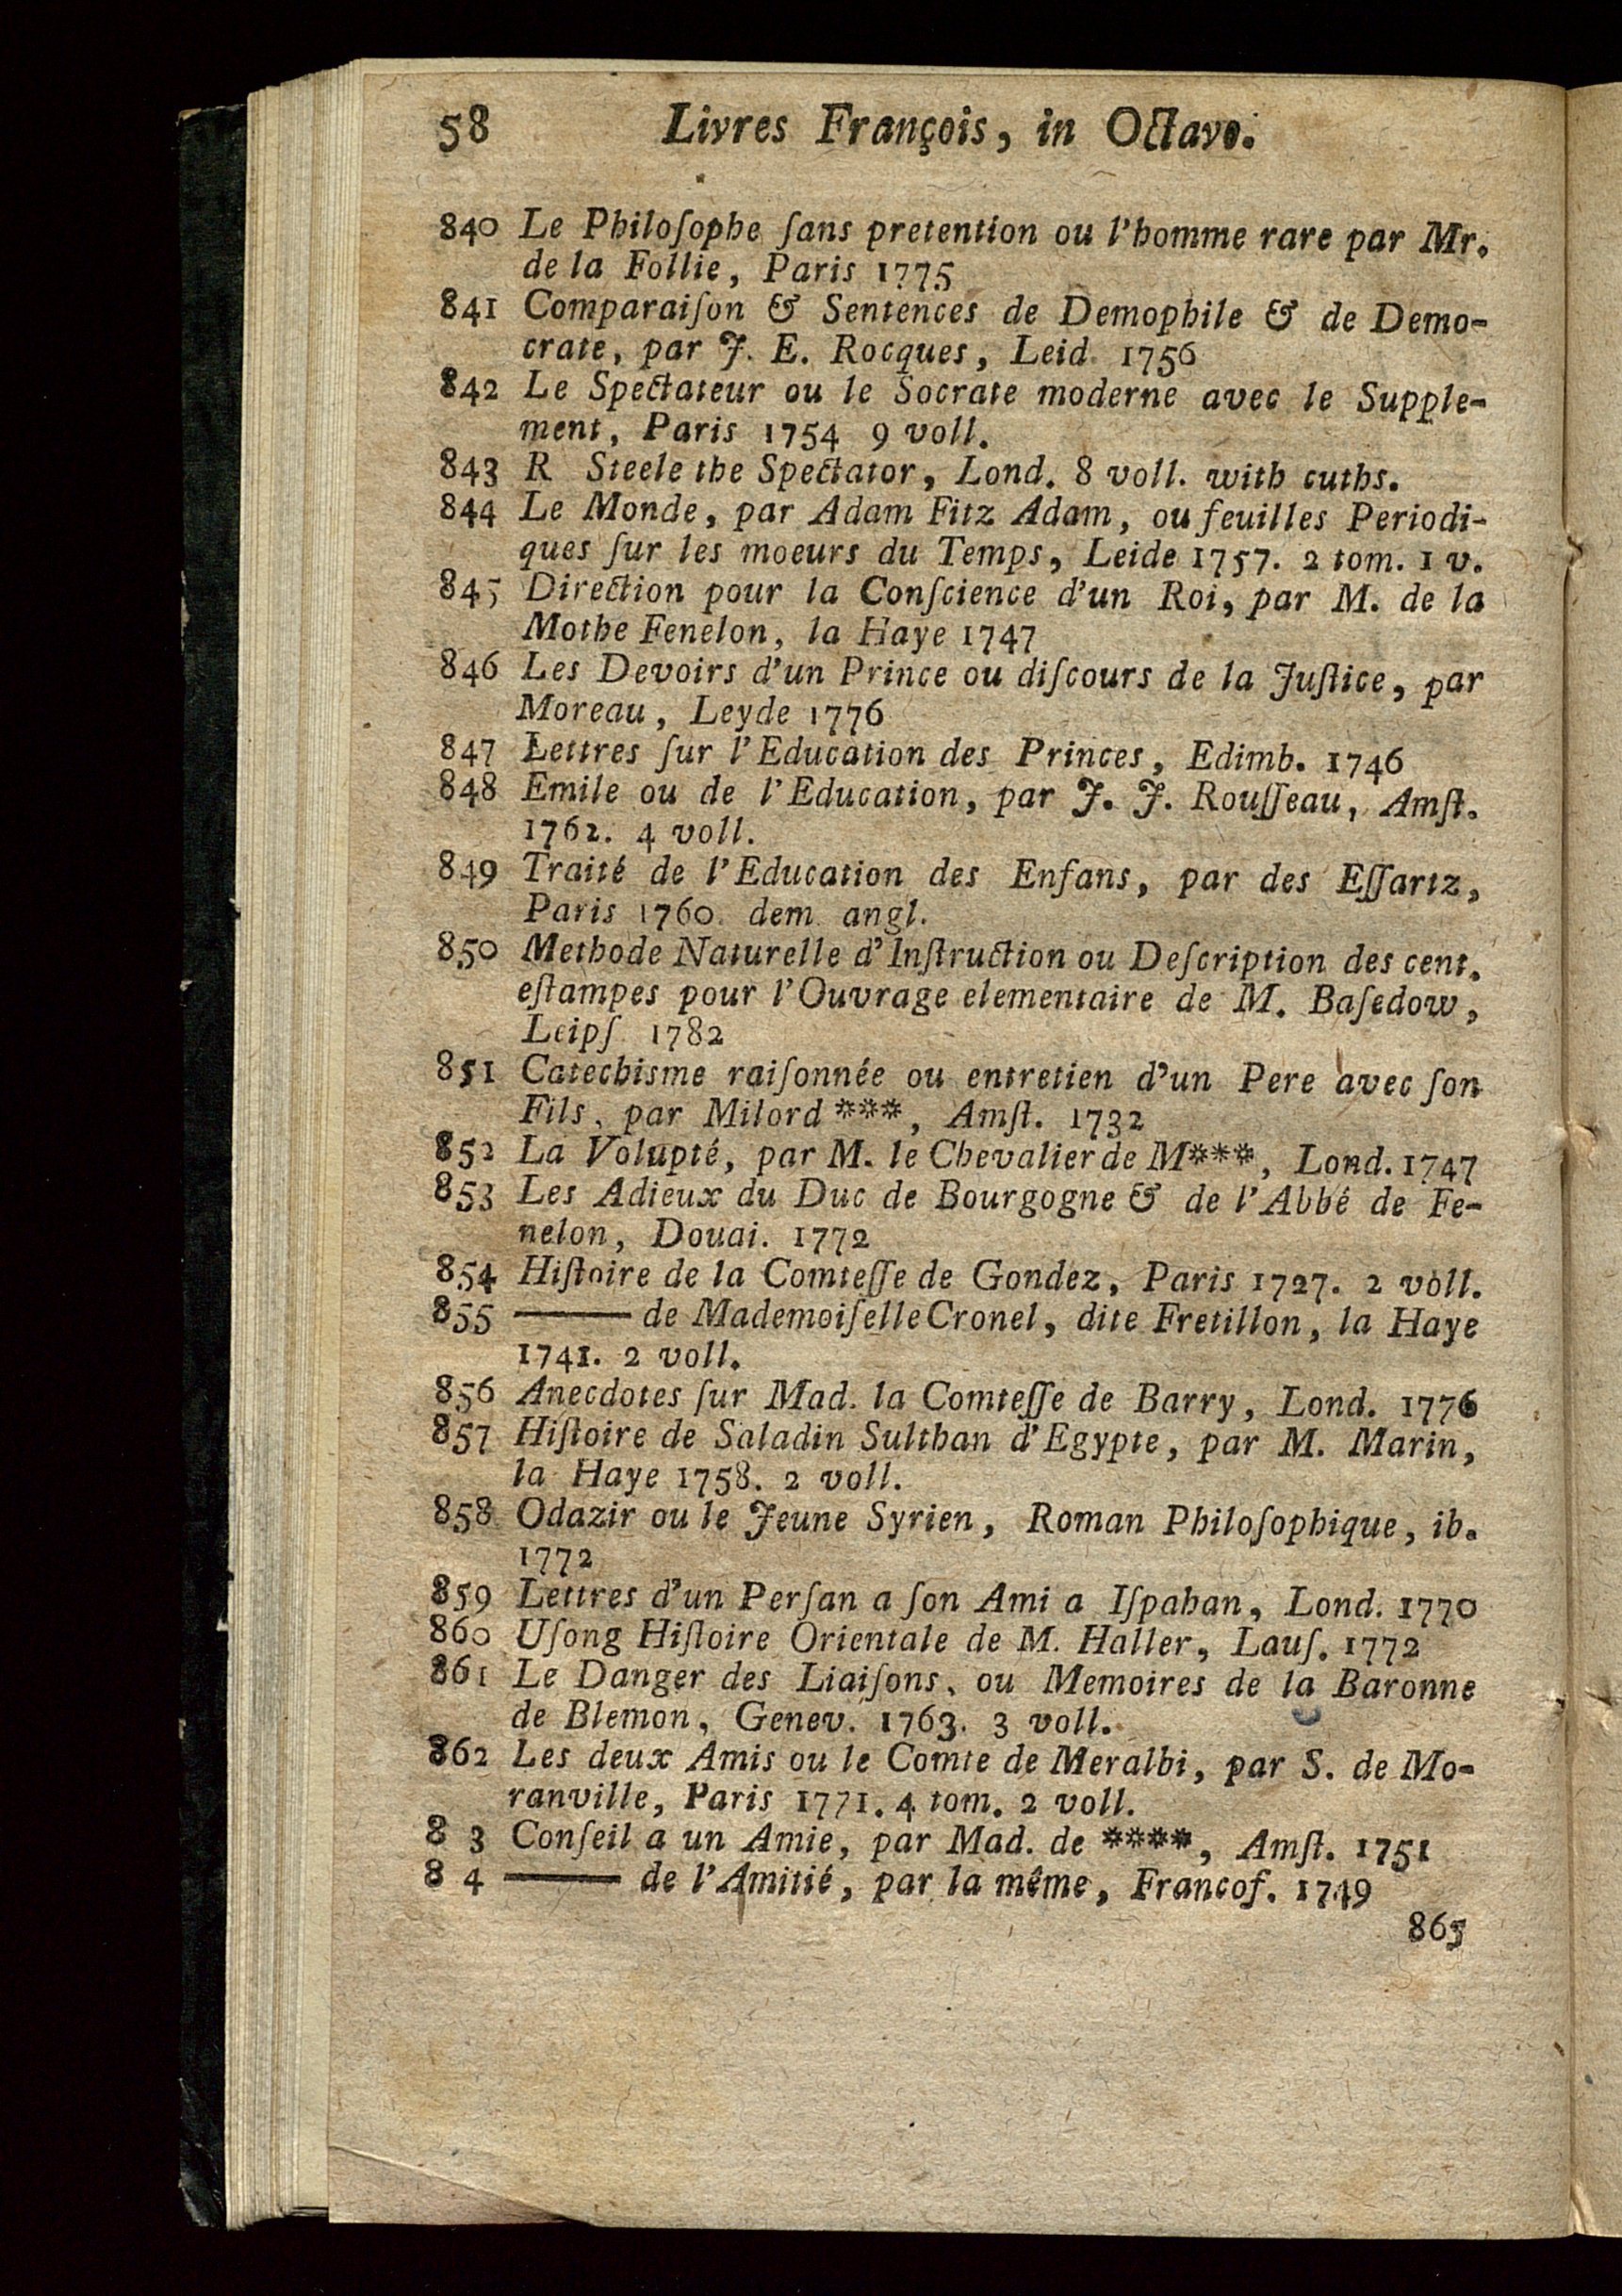 58 Livres François, in Octavo.
840 Le Philoſophe ſans pretention ou l'homme rare par Mr.
de la Follie, Paris 1775
841 Comparaiſon & Sentences de Demophile & de Demo-
crate, par J. E. Rocques, Leid. 1756
842 Le Spectateur ou le Socrate moderne avec le Supple-
ment, Paris 1754 9 voll.
843 R Steele the Spectator, Lond. 8 voll. with cuths.
844 Le Monde, par Adam Fitz Adam, ou feuilles Periodi-
ques ſur les moeurs du Temps, Leide 1757. 2 tom. 1 v.
845 Direction pour la Conſcience d'un Roi, par M. de la
Mothe Fenelon, la Haye 1747
846 Les Devoirs d'un Prince ou diſcours de la Juſtice, par
Moreau, Leyde 1776
847 Lettres ſur l'Education des Princes, Edimb. 1746
848 Emile ou de l'Education, par J. J. Rouſſeau, Amſt.
1762. 4 voll.
849 Traité de l'Education des Enfans, par des Eſſartz,
Paris 1760. dem. angl.
850 Methode Naturelle d'Inſtruction ou Deſcription des cent.
eſtampes pour l'Ouvrage elementaire de M. Baſedow,
Leipſ 1782
851 Catechisme raiſonnée ou entretien d'un Pere avec ſon
Fils, par Milord ***, Amſt. 1732
852 La Volupté, par M. le Chevalier de M***, Lond. 1747
853 Les Adieux du Duc de Bourgogne & de l'Abbé de Fe-
nelon, Douai. 1772
854 Hiſtoire de la Comteſſe de Gondez, Paris 1727. 2 voll.
855 ——— de Mademoiſelle Cronel, dite Fretillon, la Haye
1741. 2 voll.
856 Anecdotes ſur Mad. la Comteſſe de Barry, Lond. 1776
857 Hiſtoire de Saladin Sulthan d'Egypte, par M. Marin,
la Haye 1758. 2 voll.
858 Odazir ou le Jeune Syrien, Roman Philoſophique, ib.
1772
859 Lettres d'un Perſan a ſon Ami a Iſpahan, Lond. 1770
860 Uſong Hiſtoire Orientale de M. Haller, Lauſ. 1772
861 Le Danger des Liaiſons, ou Memoires de la Baronne
de Blemon, Genev. 1763. 3 voll.
862 Les deux Amis ou le Comte de Meralbi, par S. de Mo-
ranville, Paris 1771. 4 tom. 2 voll.
8 3 Conſeil a un Amie, par Mad. de ****, Amſt. 1751
8 4 ——— de l'Amitié, par la même, Francof. 1749
865